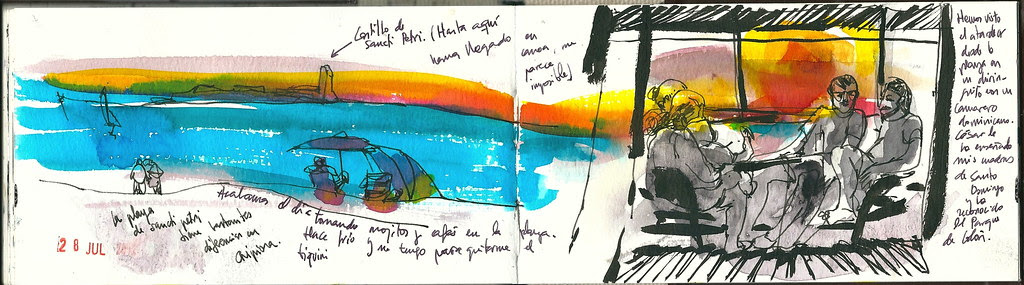 Castillo de
Sancti Petri. (Hasta aquí
hemos llegado en
canoa, me
parece
imposible)
la playa
de Sancti Petri
tiene
diferencia en
Chipiona.
28 JUL
Acabamos el día tomando mojitos y cafés en la playa.
Hace frío y no tengo para quitarme el
tiquini
Hemos visto
el atardecer
desde la
playa en
un chirin-
guito con un
camarero
dominicano.
César le
ha enseñado
mis cuadros
de Santo
Domingo
y ha
reconocido
el Parque
de Colón.